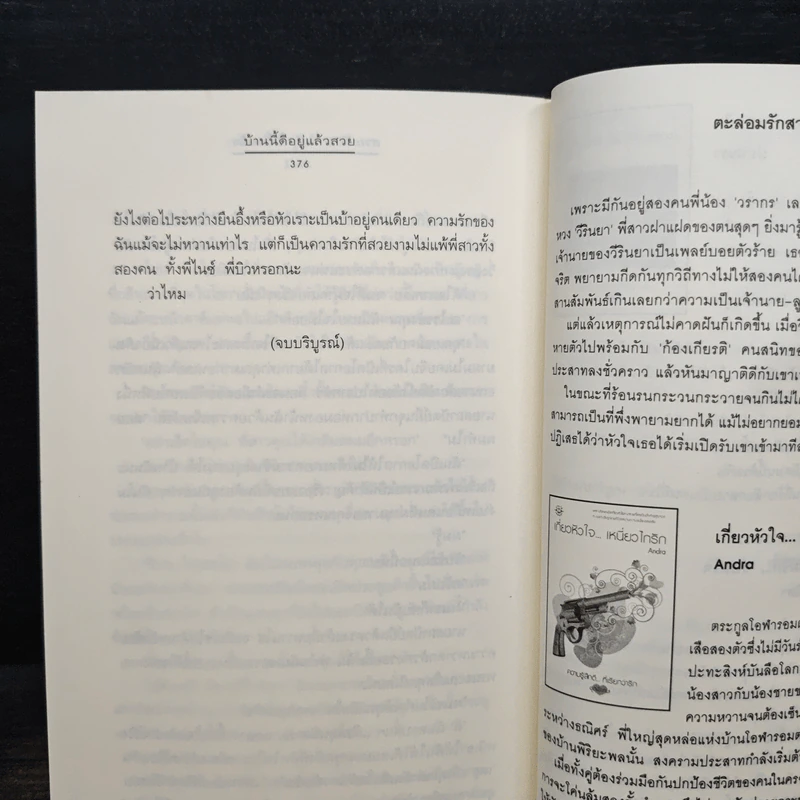 บ้านนี้ดีอยู่แล้วสวย
376
ยังไงต่อไประหว่างยืนอึ้งหรือหัวเราะเป็นบ้าอยู่คนเดียว ความรักของ
ฉันแม้จะไม่หวานเท่าไร แต่ก็เป็นความรักที่สวยงามไม่แพ้พี่สาวทั้ง
สองคน ทั้งพี่ไนซ์ พี่บิวหรอกนะ
ว่าไหม
(จบบริบูรณ์)
ตะล่อมรักสา
เพราะมีกันอยู่สองคนพี่น้อง 'วรากร' เล
หวง 'วีรินยา' พี่สาวฝาแฝดของตนสุดๆ ยิ่งมารู้
เจ้านายของวีรินยาเป็นเพลย์บอยตัวร้าย เธอ
จริต พยายามกีดกันทุกวิถีทางไม่ให้สองคนได้
สานสัมพันธ์เกินเลยกว่าความเป็นเจ้านาย-ลู
แต่แล้วเหตุการณ์ไม่คาดฝันก็เกิดขึ้น เมื่อวี
หายตัวไปพร้อมกับ 'ก้องเกียรติ' คนสนิทของ
ประสาทลงชั่วคราว แล้วหันมาญาติดีกับเขาเพ
ในขณะที่ร้อนรนกระวนกระวายจนกินไม่ได้
สามารถเป็นที่พึ่งพายามยากได้ แม้ไม่อยากยอม
ปฏิเสธได้ว่าหัวใจเธอได้เริ่มเปิดรับเขาเข้ามาทีล
เกี่ยวหัวใจ... เหนี่ยวไกรัก
Andra
ความรู้สึกดี... ที่เรียกว่ารัก
เกี่ยวหัวใจ...
Andra
ตระกูลโอฬารอมต
เสือสองตัวซึ่งไม่มีวันร
ปะทะสิงห์บันลือโลก
น้องสาวกับน้องชายขอ
ความหวานจนต้องเข็น
ระหว่างธณิศร์ พี่ใหญ่สุดหล่อแห่งบ้านโอฬารอมต
ของบ้านพิริยะพลนั้น สงครามประสาทกำลังเริ่มต้
เมื่อทั้งคู่ต้องร่วมมือกันปกป้องชีวิตของคนในคร